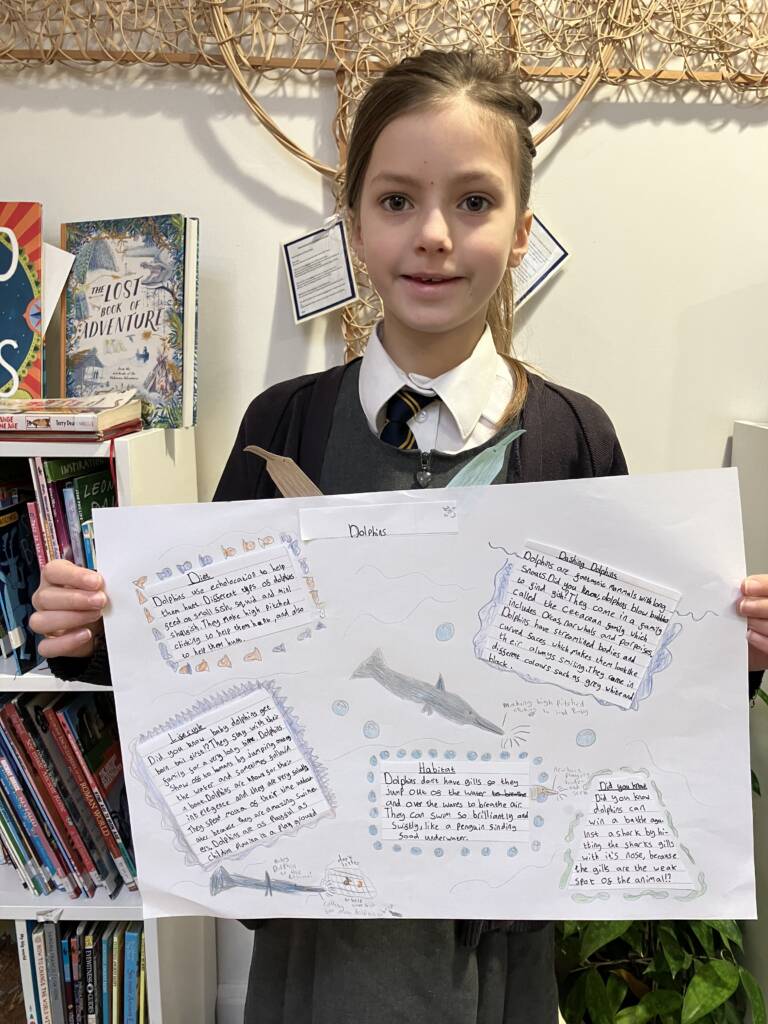 THE LOST
BOOK OF
ADVENTURE
Terry Deary
Dolphins
Diet
Dolphins use echolocation to help
them hunt. Different types of dolphins
feed on small fish, squid and mini
They make high pitched
clicking to help them hunt, and also
to help them hunt.
Dashing Dolphins
Dolphins are fantastic mammals with long
snouts. Did you know, dolphins blow bubbles
to find fish? They come in a family
called the Cetacean family which
includes Orcas, narwhals and porpoises.
Dolphins have streamlined bodies and
curved faces which makes them look like
their always smiling. They come in
different colours such as grey, white and
black.
making high pitched
Life cycle
Did you know baby dolphins get
born tail first!? They stay with their
family for a very long time. Dolphins
show off to humans by jumping over
the water and sometimes follow
a boat. Dolphins are known for their
intelegence and they are very
They spend most of their time
because they are amazing swimm
ers. Dolphins are as playful as
children playing in a play ground
Habitat
Dolphins don't have gills so they
jump out of the water
and over the waves to breathe air.
They can swim so brilliantly and
swiftly, like a penguin finding
food underwater.
Did you know
Did you know
dolphins can
win a battle aga
inst a shark by hi-
tting the sharks gills
with it's nose, because
the gills are the weak
spot of the animal!?
don't
litter